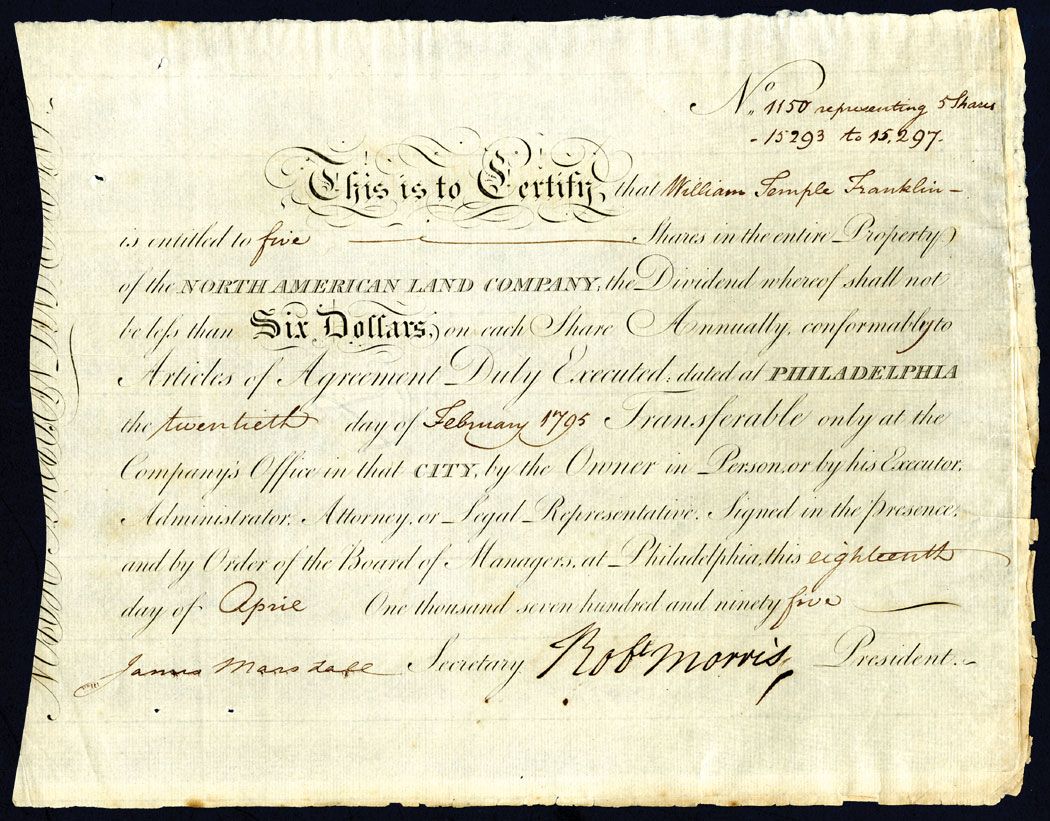 No. 1150 representing 5 Shares
- 15293 to 15,297.
This is to Certify, that William Temple Franklin -
is entitled to five Shares in the entire Property
of the NORTH AMERICAN LAND COMPANY, the Dividend whereof shall not
be less than Six Dollars, on each Share Annually, conformably to
Articles of Agreement Duly Executed; dated at PHILADELPHIA
the twentieth day of February 1795 Transferable only at the
Company's Office in that CITY, by the Owner in Person, or by his Executor,
Administrator, Attorney, or Legal Representative. Signed in the presence,
and by Order of the Board of Managers, at Philadelphia, this eighteenth
day of April One thousand seven hundred and ninety five
James Marsdale Secretary. Robt Morris, President.